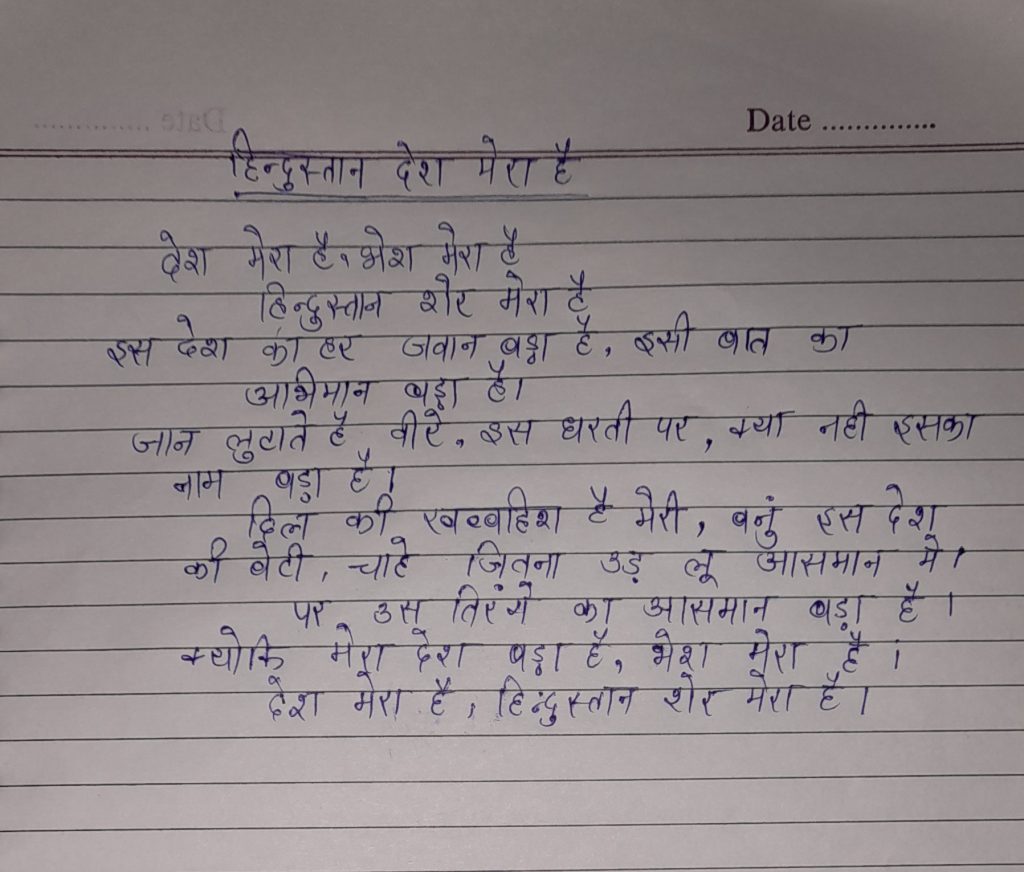 Date ..............
हिन्दुस्तान देश मेरा है
देश मेरा है, भेश मेरा है
हिन्दुस्तान शेर मेरा है
इस देश का हर जवान बड़ा है, इसी बात का
अभिमान बड़ा है।
जान लुटाते है, वीरे, इस धरती पर, क्या नही इसका
नाम बड़ा है।
दिल की ख्वाहिश है मेरी, बनुं इस देश
की बेटी, चाहे जितना उड़ लू आसमान मे।
पर उस तिरंगे का आसमान बड़ा है।
क्योकि मेरा देश बड़ा है, भेश मेरा है।
देश मेरा है, हिन्दुस्तान शेर मेरा है।